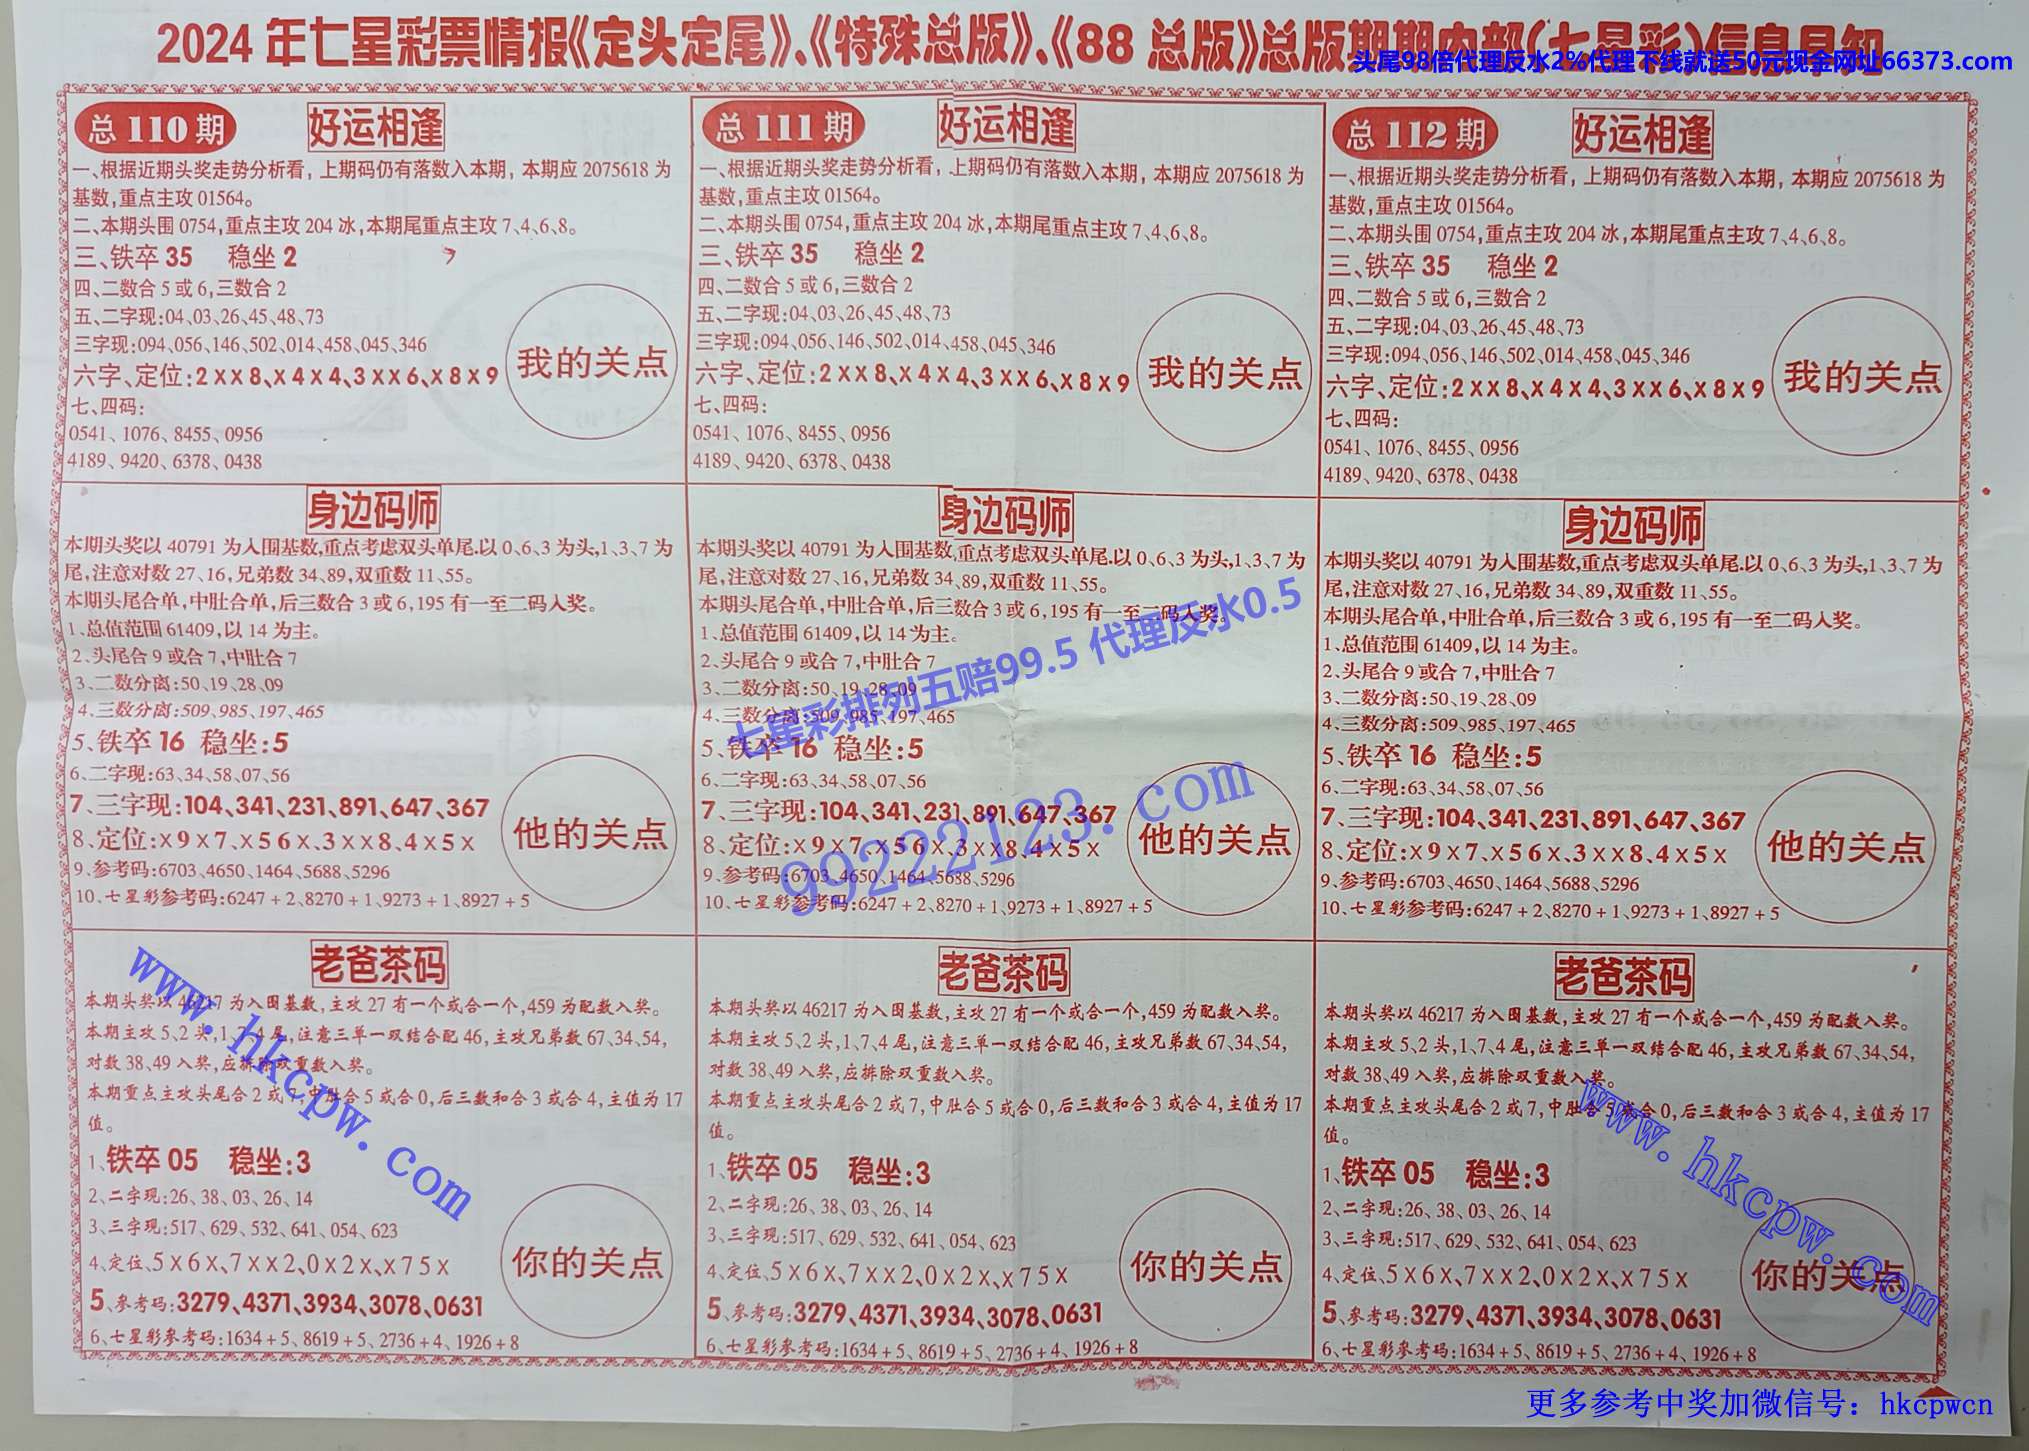 2024年七星彩票情报《定头定尾》、《特殊总版》、《88总版》总版期期内部(七星彩)信息早知
头尾98倍代理反水2%代理下线就送50元现金网址66373.com
总110期 好运相逢
一、根据近期头奖走势分析看，上期码仍有落数入本期，本期应2075618为
基数,重点主攻01564。
二、本期头围0754,重点主攻204冰,本期尾重点主攻7、4、6、8。
三、铁卒35 稳坐2
四、二数合5或6,三数合2
五、二字现:04、03、26、45、48、73
三字现:094、056、146、502、014、458、045、346
六字、定位:2××8、×4×4、3××6、×8×9
七、四码:
0541、1076、8455、0956
4189、9420、6378、0438
我的关点
身边码师
本期头奖以40791为入围基数,重点考虑双头单尾.以0、6、3为头,1、3、7为
尾,注意对数27、16,兄弟数34、89,双重数11、55。
本期头尾合单,中肚合单,后三数合3或6,195有一至二码入奖。
1、总值范围61409,以14为主。
2、头尾合9或合7,中肚合7
3、二数分离:50、19、28、09
4、三数分离:509、985、197、465
5、铁卒16 稳坐:5
6、二字现:63、34、58、07、56
7、三字现:104、341、231、891、647、367
8、定位:×9×7、×56×、3××8、4×5×
9、参考码:6703、4650、1464、5688、5296
10、七星彩参考码:6247+2、8270+1、9273+1、8927+5
他的关点
老爸茶码
本期头奖以46217为入围基数,主攻27有一个或合一个,459为配数入奖。
本期主攻5、2头,1、7、4尾,注意三单一双结合配46,主攻兄弟数67、34、54,
对数38、49入奖,应排除双重数入奖。
本期重点主攻头尾合2或7,中肚合5或合0,后三数和合3或合4,主值为17
值。
1、铁卒05 稳坐:3
2、二字现:26、38、03、26、14
3、三字现:517、629、532、641、054、623
4、定位、5×6×、7××2、0×2×、×75×
5、参考码:3279、4371、3934、3078、0631
6、七星彩参考码:1634+5、8619+5、2736+4、1926+8
你的关点
总111期 好运相逢
一、根据近期头奖走势分析看，上期码仍有落数入本期，本期应2075618为
基数,重点主攻01564。
二、本期头围0754,重点主攻204冰,本期尾重点主攻7、4、6、8。
三、铁卒35 稳坐2
四、二数合5或6,三数合2
五、二字现:04、03、26、45、48、73
三字现:094、056、146、502、014、458、045、346
六字、定位:2××8、×4×4、3××6、×8×9
七、四码:
0541、1076、8455、0956
4189、9420、6378、0438
我的关点
身边码师
本期头奖以40791为入围基数,重点考虑双头单尾.以0、6、3为头,1、3、7为
尾,注意对数27、16,兄弟数34、89,双重数11、55。
本期头尾合单,中肚合单,后三数合3或6,195有一至二码入奖。
1、总值范围61409,以14为主。
2、头尾合9或合7,中肚合7
3、二数分离:50、19、28、09
4、三数分离:509、985、197、465
5、铁卒16 稳坐:5
6、二字现:63、34、58、07、56
7、三字现:104、341、231、891、647、367
8、定位:×9×7、×56×、3××8、4×5×
9、参考码:6703、4650、1464、5688、5296
10、七星彩参考码:6247+2、8270+1、9273+1、8927+5
他的关点
老爸茶码
本期头奖以46217为入围基数,主攻27有一个或合一个,459为配数入奖。
本期主攻5、2头,1、7、4尾,注意三单一双结合配46,主攻兄弟数67、34、54,
对数38、49入奖,应排除双重数入奖。
本期重点主攻头尾合2或7,中肚合5或合0,后三数和合3或合4,主值为17
值。
1、铁卒05 稳坐:3
2、二字现:26、38、03、26、14
3、三字现:517、629、532、641、054、623
4、定位、5×6×、7××2、0×2×、×75×
5、参考码:3279、4371、3934、3078、0631
6、七星彩参考码:1634+5、8619+5、2736+4、1926+8
你的关点
总112期 好运相逢
一、根据近期头奖走势分析看，上期码仍有落数入本期，本期应2075618为
基数,重点主攻01564。
二、本期头围0754,重点主攻204冰,本期尾重点主攻7、4、6、8。
三、铁卒35 稳坐2
四、二数合5或6,三数合2
五、二字现:04、03、26、45、48、73
三字现:094、056、146、502、014、458、045、346
六字、定位:2××8、×4×4、3××6、×8×9
七、四码:
0541、1076、8455、0956
4189、9420、6378、0438
我的关点
身边码师
本期头奖以40791为入围基数,重点考虑双头单尾.以0、6、3为头,1、3、7为
尾,注意对数27、16,兄弟数34、89,双重数11、55。
本期头尾合单,中肚合单,后三数合3或6,195有一至二码入奖。
1、总值范围61409,以14为主。
2、头尾合9或合7,中肚合7
3、二数分离:50、19、28、09
4、三数分离:509、985、197、465
5、铁卒16 稳坐:5
6、二字现:63、34、58、07、56
7、三字现:104、341、231、891、647、367
8、定位:×9×7、×56×、3××8、4×5×
9、参考码:6703、4650、1464、5688、5296
10、七星彩参考码:6247+2、8270+1、9273+1、8927+5
他的关点
老爸茶码
本期头奖以46217为入围基数,主攻27有一个或合一个,459为配数入奖。
本期主攻5、2头,1、7、4尾,注意三单一双结合配46,主攻兄弟数67、34、54,
对数38、49入奖,应排除双重数入奖。
本期重点主攻头尾合2或7,中肚合5或合0,后三数和合3或合4,主值为17
值。
1、铁卒05 稳坐:3
2、二字现:26、38、03、26、14
3、三字现:517、629、532、641、054、623
4、定位、5×6×、7××2、0×2×、×75×
5、参考码:3279、4371、3934、3078、0631
6、七星彩参考码:1634+5、8619+5、2736+4、1926+8
你的关点
七星彩排列五赔99.5 代理反水0.5
99222123.com
www.hkcpw.com
www.hkcpw.com
更多参考中奖加微信号：hkcpwcn